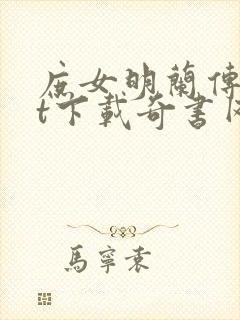 庶女明蘭傳
t下載奇書网
馬寧袁